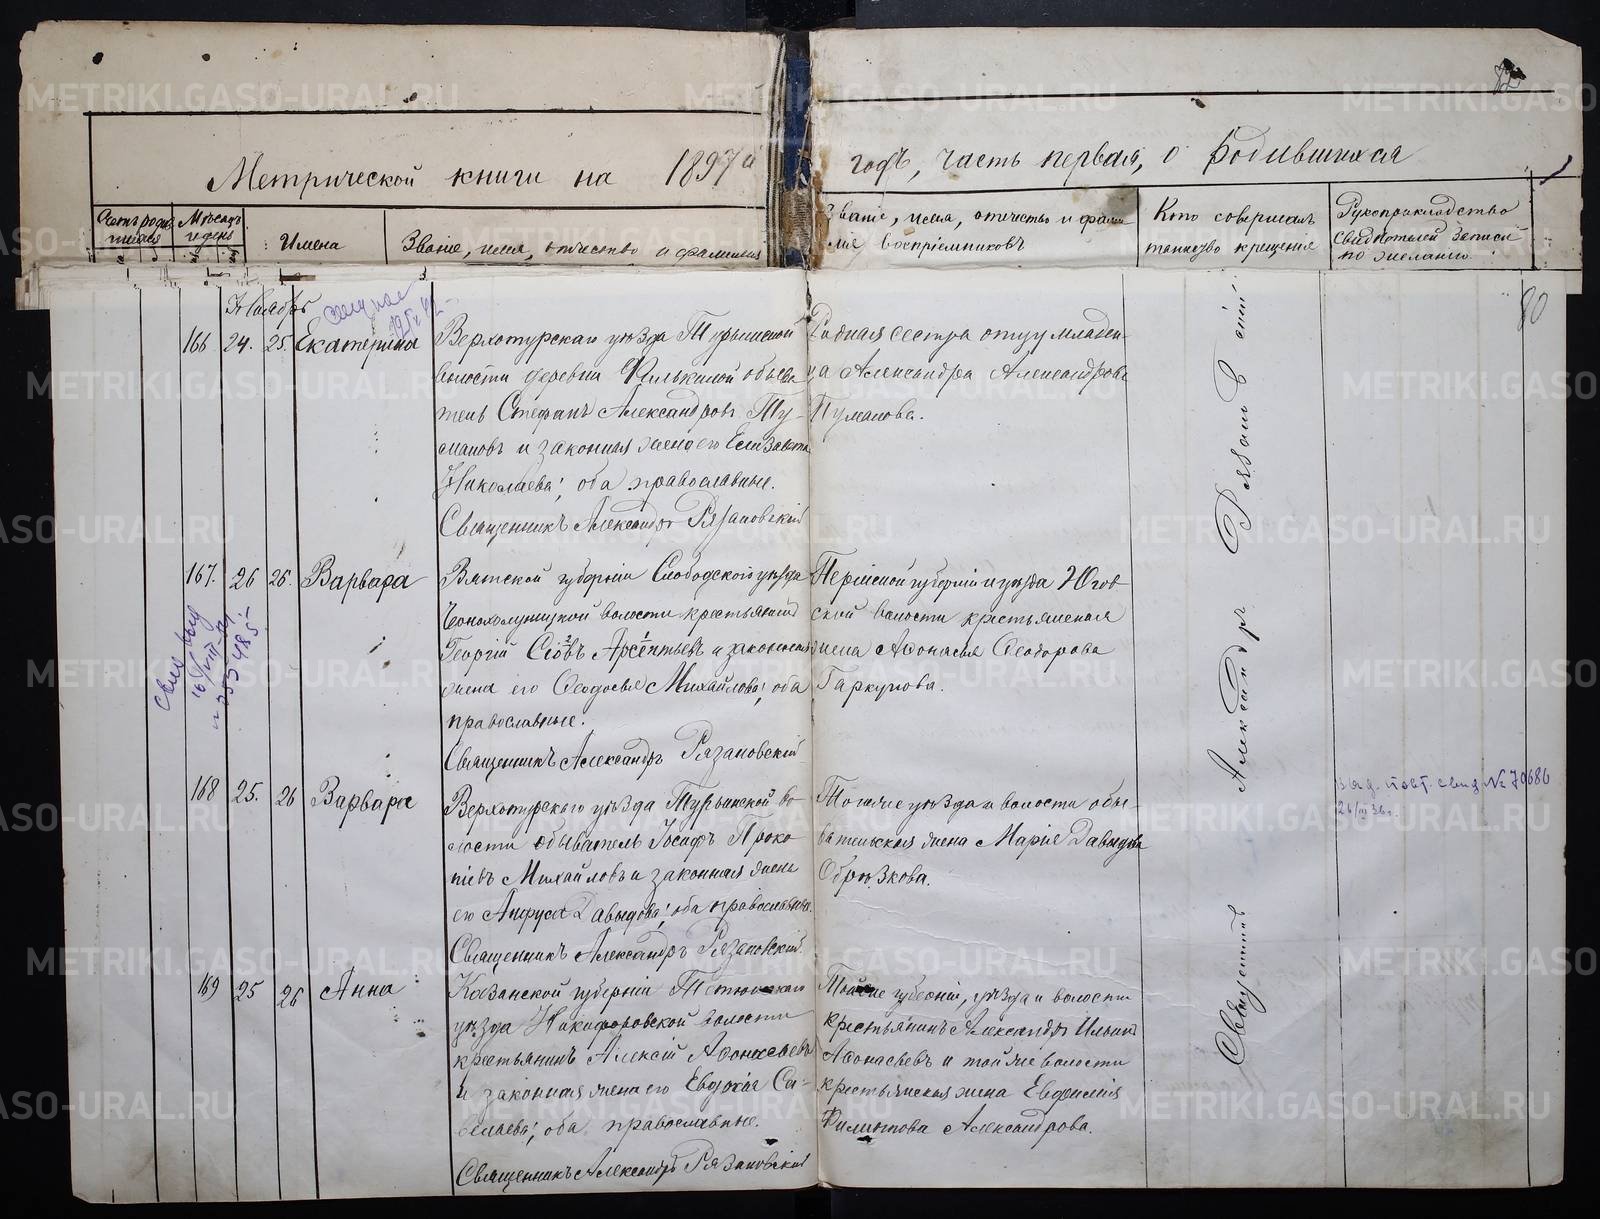 Метрической книги на 1897й
годъ, часть первая, о родившихся
Счетъ родив
шихся
Мѣсяцъ
и день
Имена
Званіе, имя, отчество и фамилія
Званіе, имя, отчество и фами
лія воспріемниковъ
Кто совершалъ
таинство крещенія
Рукоприкладство
свидѣтелей записи
по желанію
80
Ноябрь
166 24. 25. Екатерина
Верхотурскаго уѣзда Турьинской
волости деревни обыва
тель Стефанъ Александровъ Ту-
мановъ и законная жена его Елизавета
Николаева; оба православные.
Священникъ Александръ Рязановскій
Родная сестра отцу младен-
ца Александра Александрова
Туманова.
167. 26 26. Варвара
Вятской губерніи Слободскаго уѣзда
волости крестьянинъ
Георгій Арсентьевъ и законная
жена его Ѳеодосья Михайлова; оба
православные.
Священникъ Александръ Рязановскій
Пермской губерніи и уѣзда Югов
ской волости крестьянская
жена Аѳонасья Ѳеодорова
Гаркунова.
168 25. 26 Варвара
Верхотурскаго уѣзда Турьинской во-
лости обыватель Іосифъ Проко
піевъ Михайловъ и законная жена
его Анфуса Давыдова; оба православные.
Священникъ Александръ Рязановскій.
Тогоже уѣзда и волости обы-
вательская жена Марія Давыдова
Обрѣзкова.
выд. повт. свид. № 79686
169 25 26 Анна
Казанской губерніи Тетюшскаго
уѣзда Никифоровской волости
крестьянинъ Алексій Аѳонасьевъ
и законная жена его Евдокія Са-
велаева; оба православные.
Священникъ Александръ Рязановскій
Тойже губерніи, уѣзда и волости
крестьянинъ Александръ Ильинъ
Аѳонасьевъ и тойже волости
крестьянская жена Евфимія
Филиппова Александрова.
Священникъ Александръ Рязановскій
METRIKI.GASO-URAL.RU